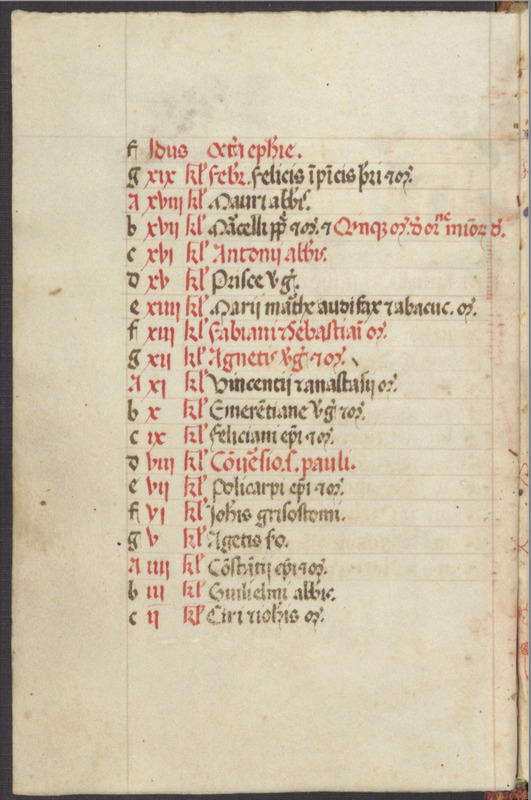 f Idus Octa ephie.
g xix kl' febr. felicis ĩpĩcis p̃bri ⁊ oꝫ.
A xviii kl' Mauri abb̃s.
b xvii kl' Mãcelli pp̃ ⁊ oꝫ. ⁊ Qinqꝫ oꝫ. d̾ or̃ne minoꝝ
c xvi kl' Antonij abbis.
d xv kl' Prisce v̾g̾.
e xiiii kl' Marij math̃e audifax ⁊ abacuc. oꝫ.
f xiii kl' fabiani ⁊ Sebastiaĩ oꝫ.
g xii kl' Agnetis v̾g̾ ⁊ oꝫ.
A xi kl' Vincentij ⁊ anastasij oꝫ.
b x kl' Emerẽtiane v̾g̾ ⁊ oꝫ.
c ix kl' feliciani ep̃i ⁊ oꝫ.
d viii kl' Cõũsio. s. pauli.
e vii kl' Policarpi ep̃i ⁊ oꝫ.
f vi kl' Joh̃is grisostomi.
g v kl' Agetis so.
A iiii kl' Cõstãtij ep̃i ⁊ oꝫ.
b iii kl' Guilielmi abbis.
c ii kl' Ciri ⁊ ioh̃is oꝫ.